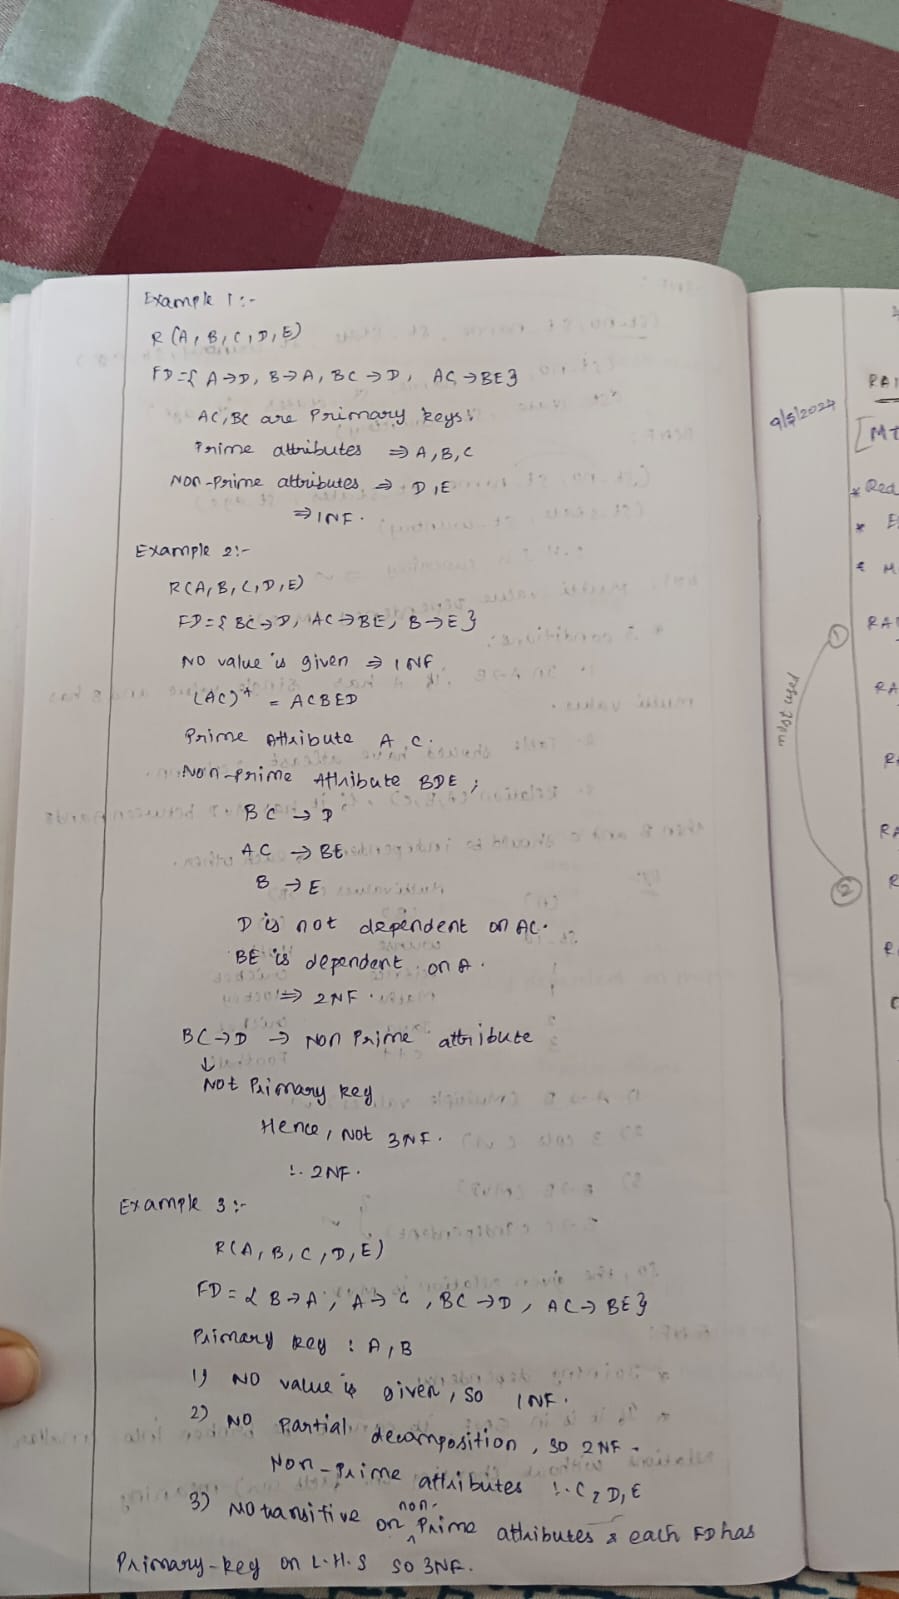 Example 1:-
R(A,B,C,D,E)
FD={ A→D, B→A, BC→D, AC→BE}
AC, BC are Primary keys:
Prime attributes ⇒ A,B,C
Non-Prime attributes ⇒ D,E
⇒ 1NF.
Example 2:-
R(A,B,C,D,E)
FD={ BC→D, AC→BE, B→E}
No value is given ⇒ 1NF
(AC)+ = ACBED
Prime Attribute A C.
Non-prime Attribute BDE ;
BC → D
AC → BE
B → E
D is not dependent on AC.
BE is dependent on A.
⇒ 2NF.
BC→D → Non Prime attribute
↓
Not Primary key
Hence, not 3NF.
∴ 2NF.
Example 3:-
R(A,B,C,D,E)
FD={ B→A, A→C, BC→D, AC→BE}
Primary key : A,B
1) No value is given, so 1NF.
2) No Partial decomposition, so 2NF.
Non-Prime attributes :. C, D, E
3) No transitive on non-Prime attributes & each FD has
Primary-key on L.H.S so 3NF.
9/5/2024
RAI
[MT
* Red
*
* M
① RAI
RA
RA
②